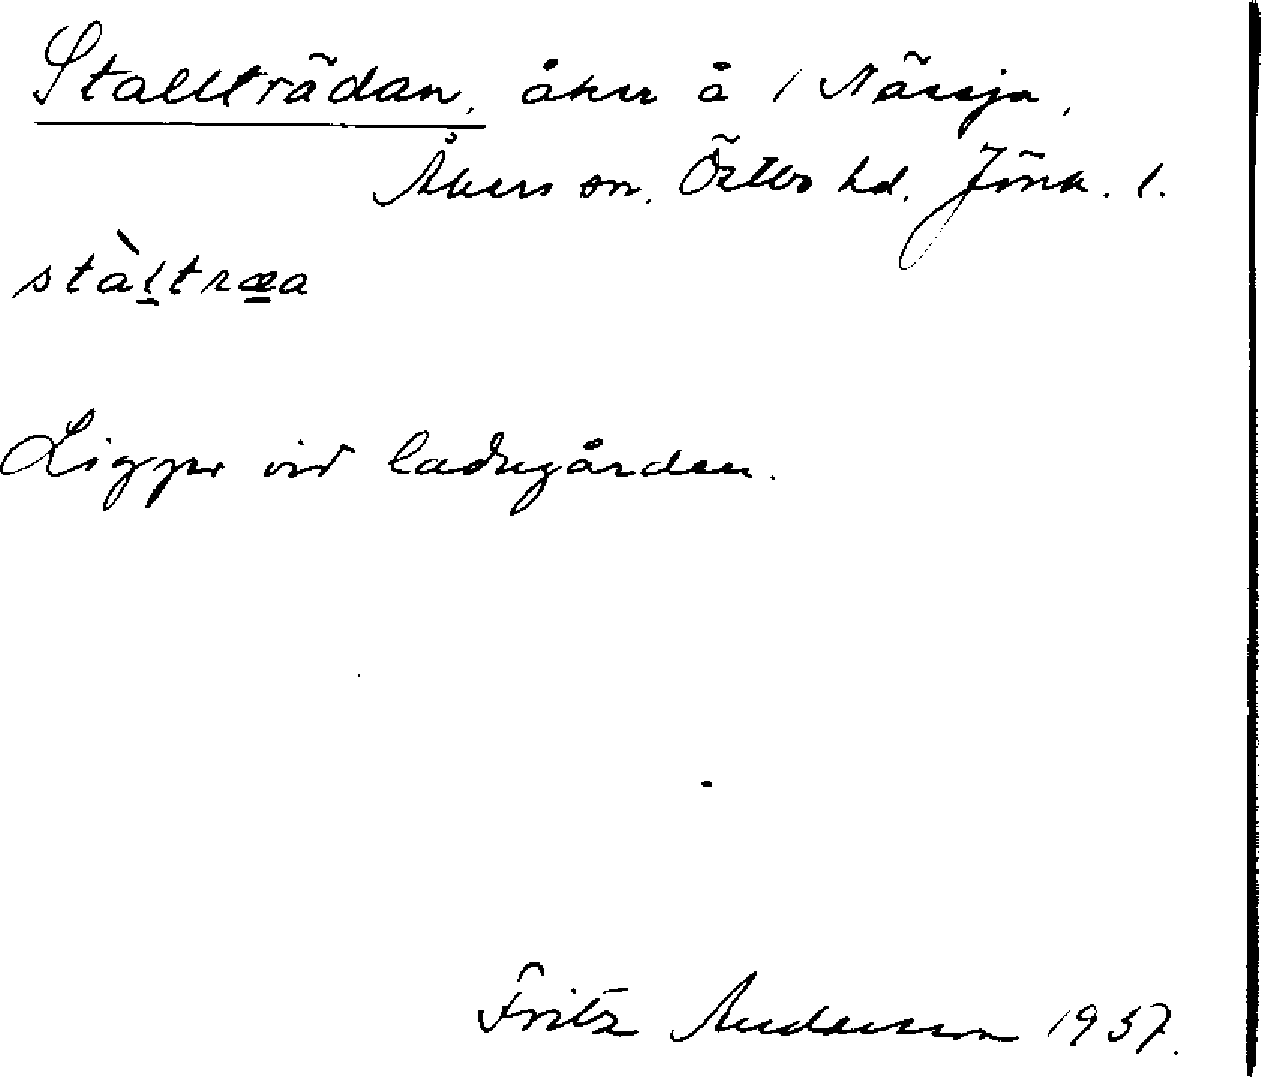 Stallträdan, åker å 1 Nässja,
Åkers sn. Östbo hd. Jönk. l.
stàltræa
Ligger vid ladugården.
Fritz Andersson 1937.